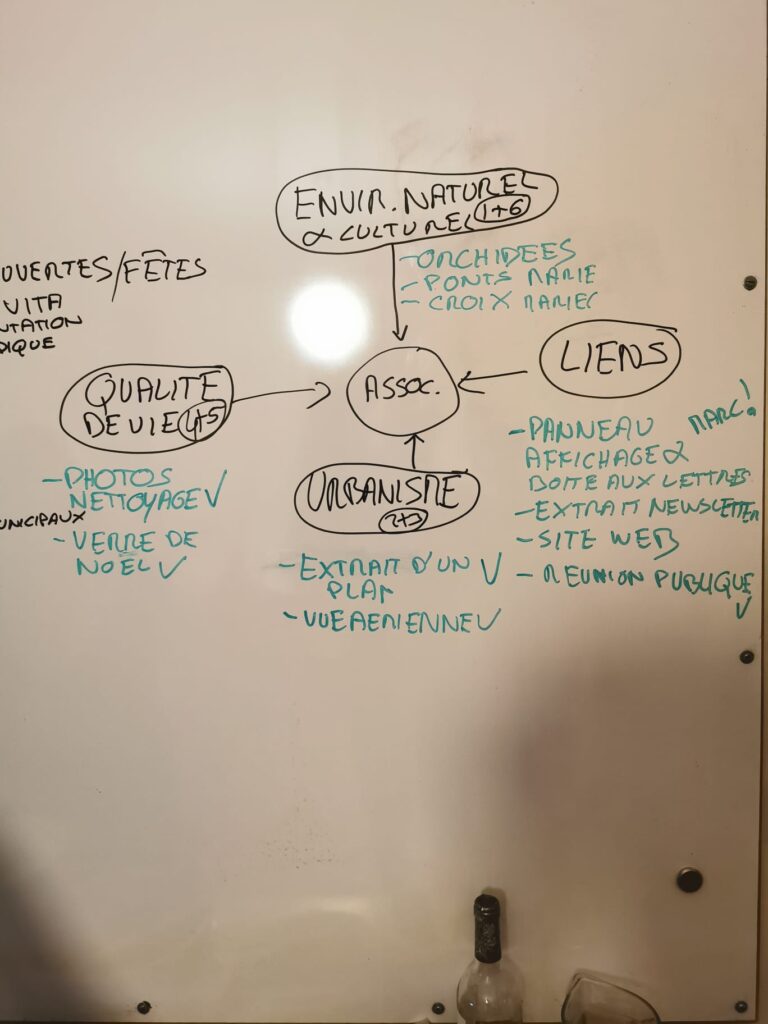 ENVIR. NATUREL
& CULTUREL 1+6
- ORCHIDEES
- PONTS MARIE
- CROIX MARIE
OUVERTES/FÊTES
VITA
NTATION
DIQUE
QUALITE
DE VIE 4+5
ASSOC.
LIENS
MARC!
- PHOTOS
NETTOYAGE ✓
UNICIPAUX
- VERRE DE
NOEL ✓
URBANISME
2+3
- EXTRAIT D'UN ✓
PLAN
- VUE AERIENNE ✓
- PANNEAU
AFFICHAGE &
BOITE AUX LETTRES
- EXTRAIT NEWSLETTER
- SITE WEB
- REUNION PUBLIQUE
✓